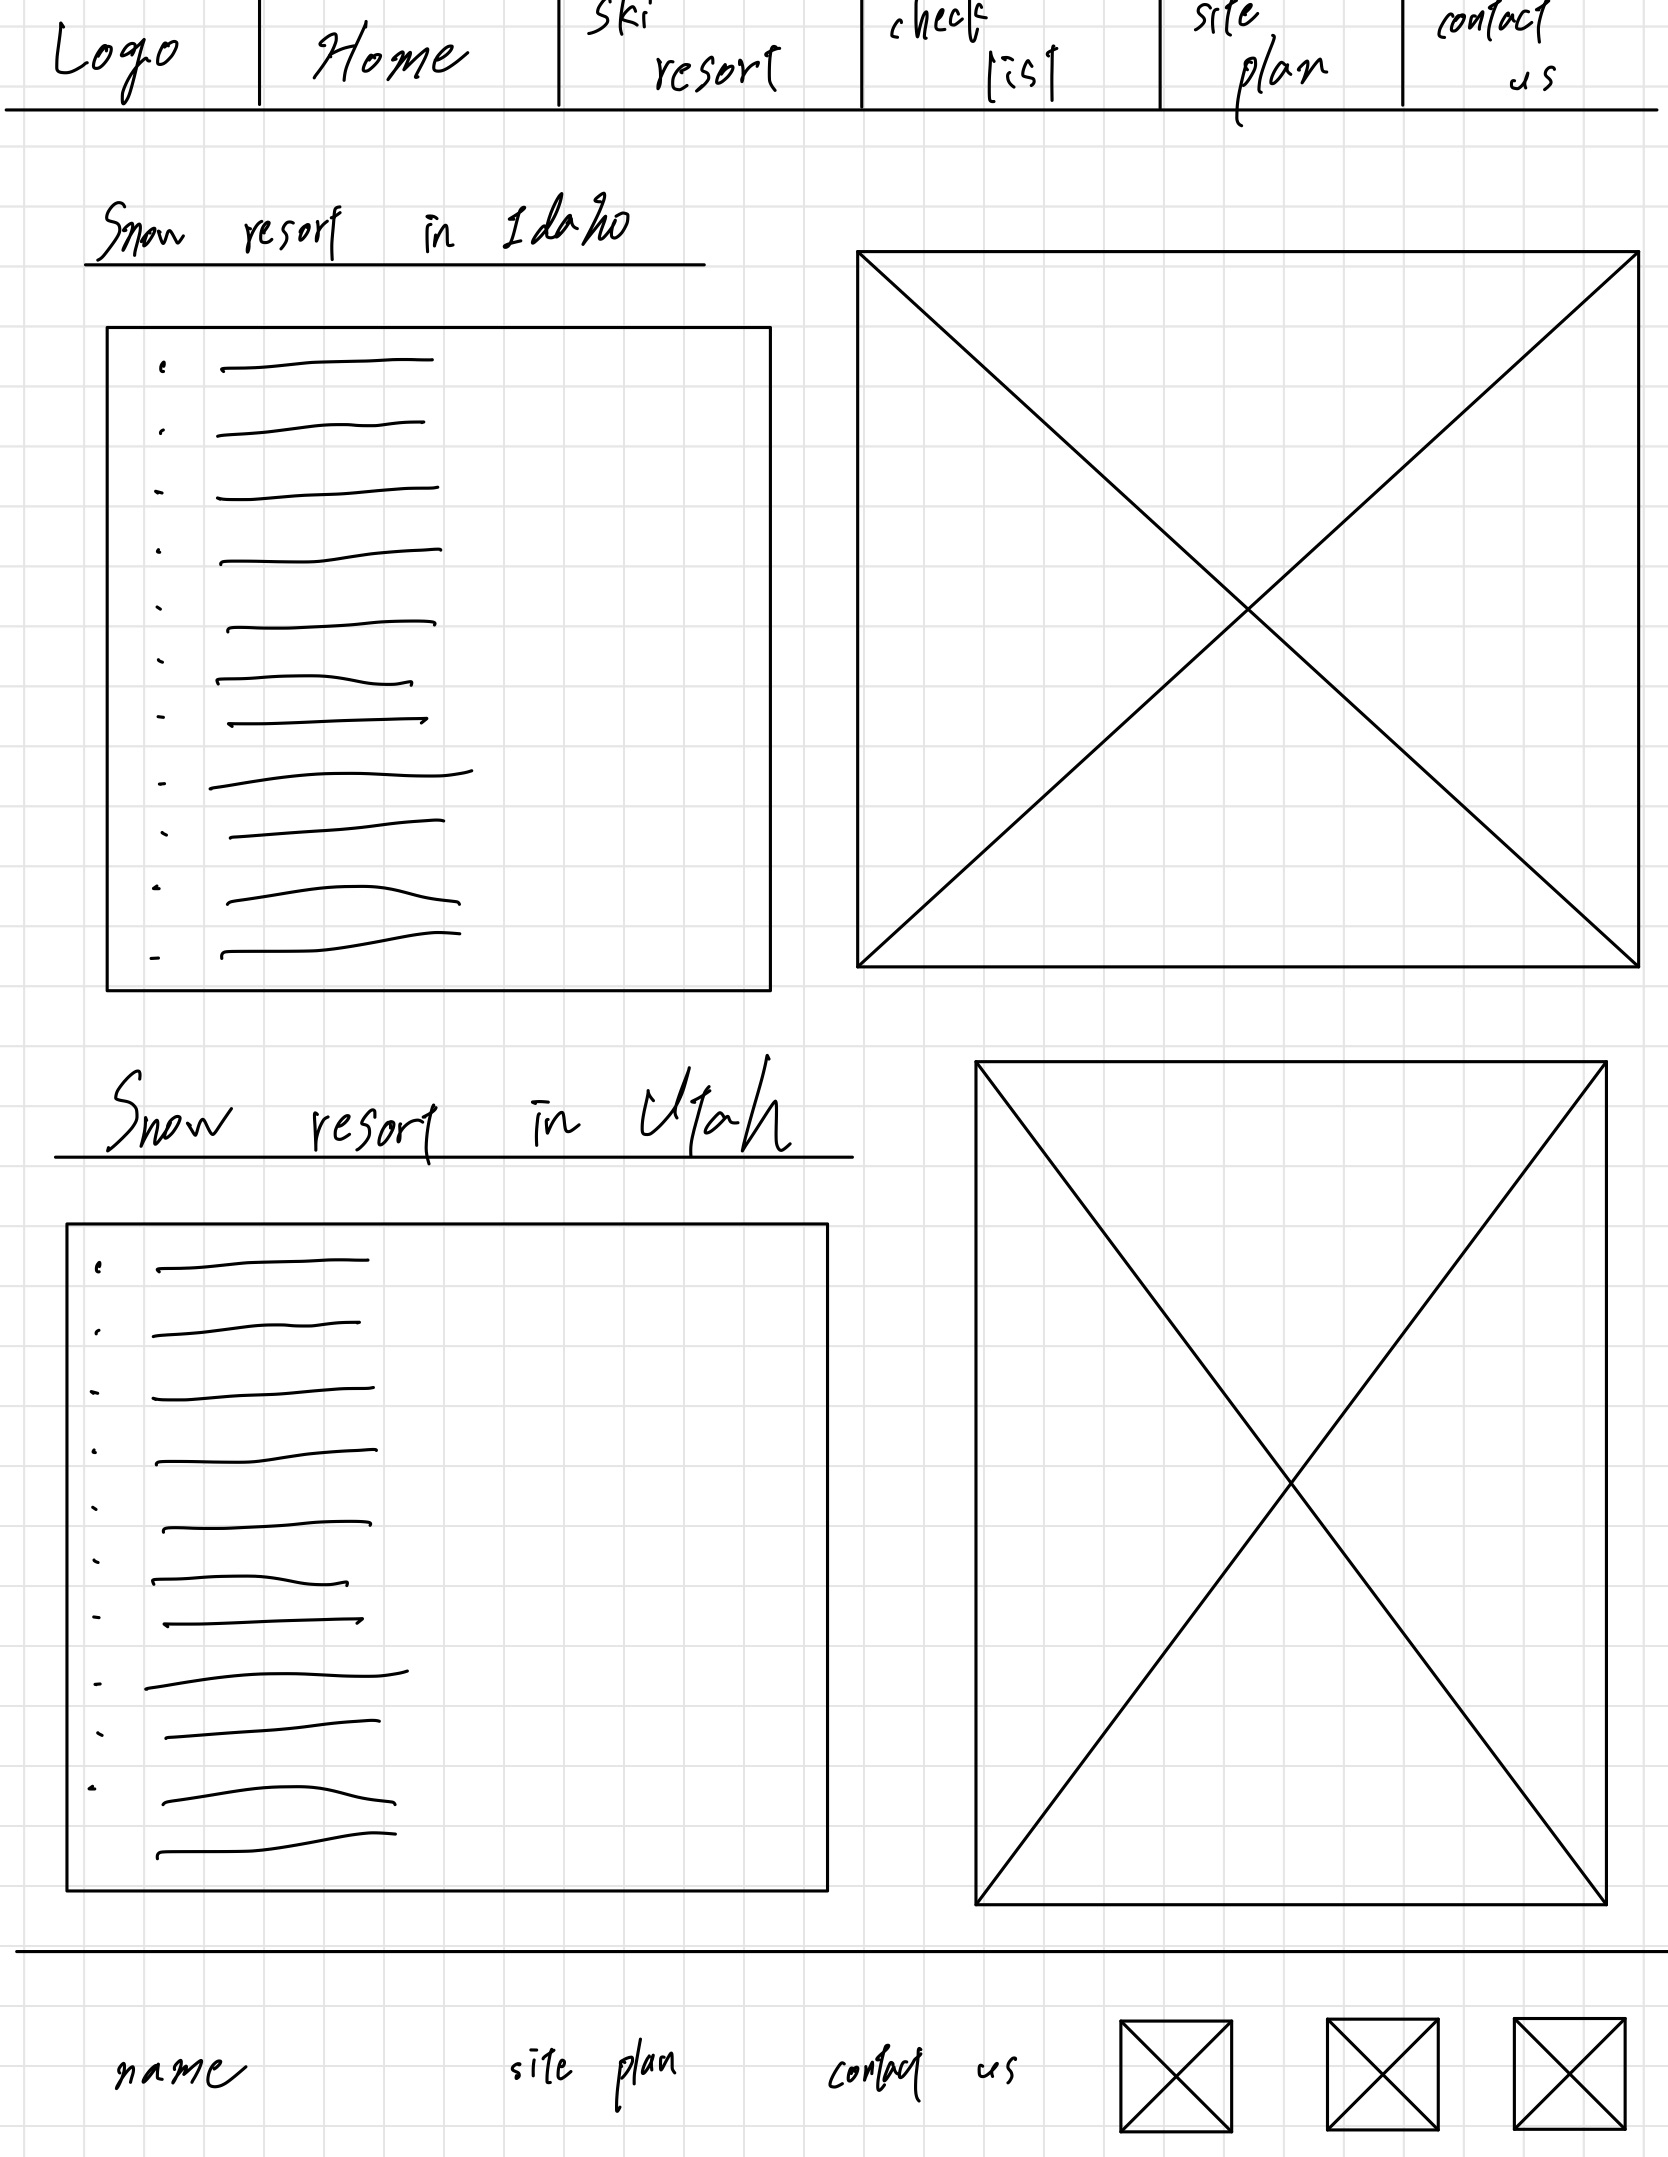 Logo
Home
ski
resort
check
list
site
plan
contact
us
Snow resort in Idaho
Snow resort in Utah
name site plan contact us